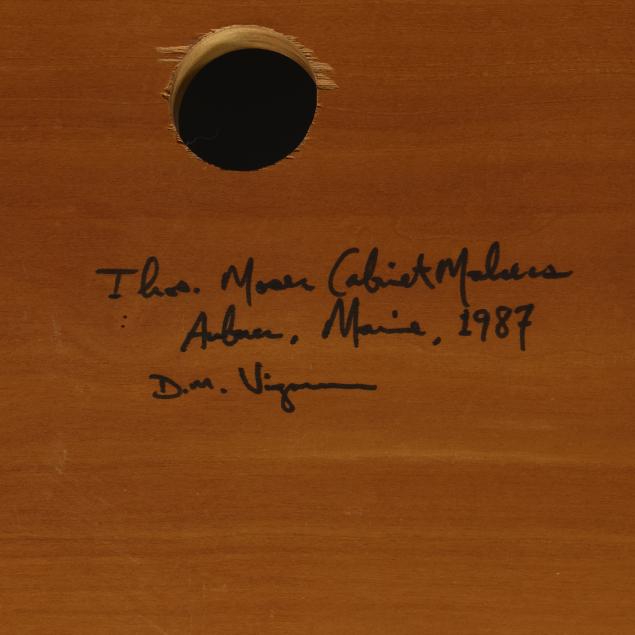 Thos. Moser Cabinet Makers
Auburn, Maine, 1987
D.M.